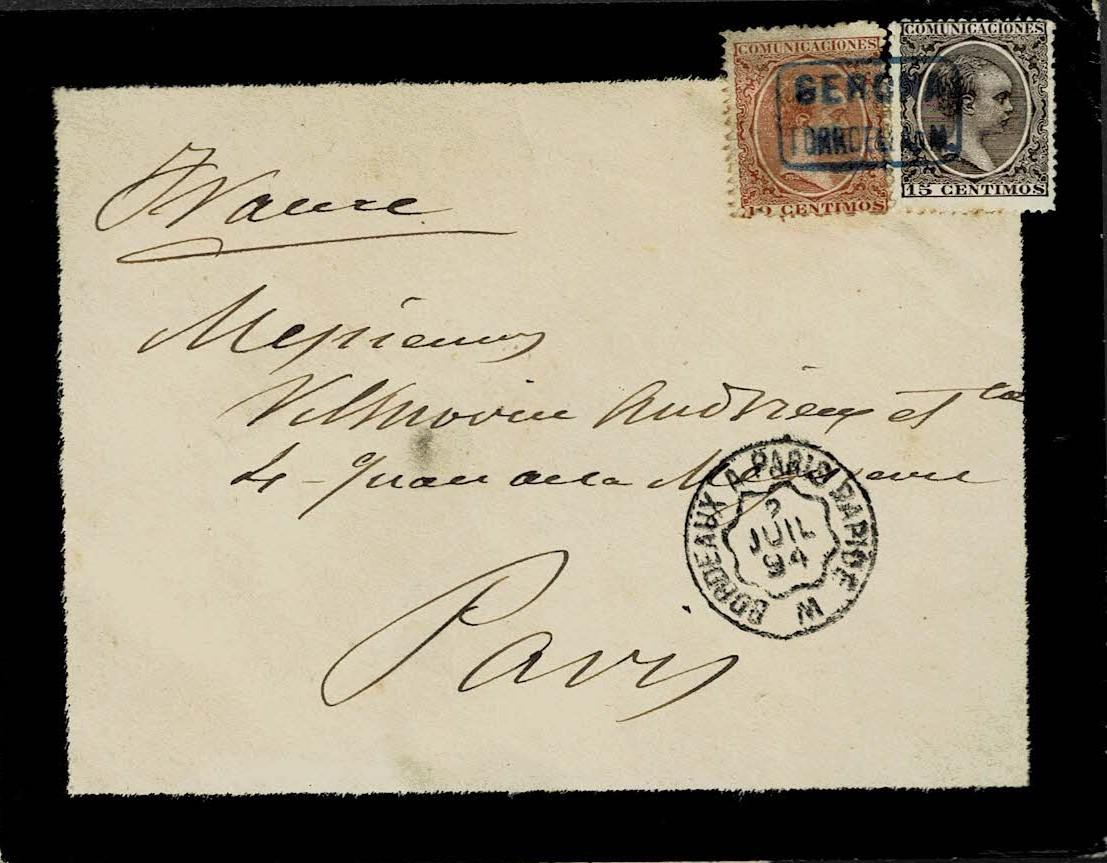 COMUNICACIONES
10 CENTIMOS
COMUNICACIONES
15 CENTIMOS
GERONA
France
Messieurs
Vilmorin Andrieux et Cie
4 - Quai de la Megisserie
BORDEAUX A PARIS RAPIDE
2
JUIL
94
Paris